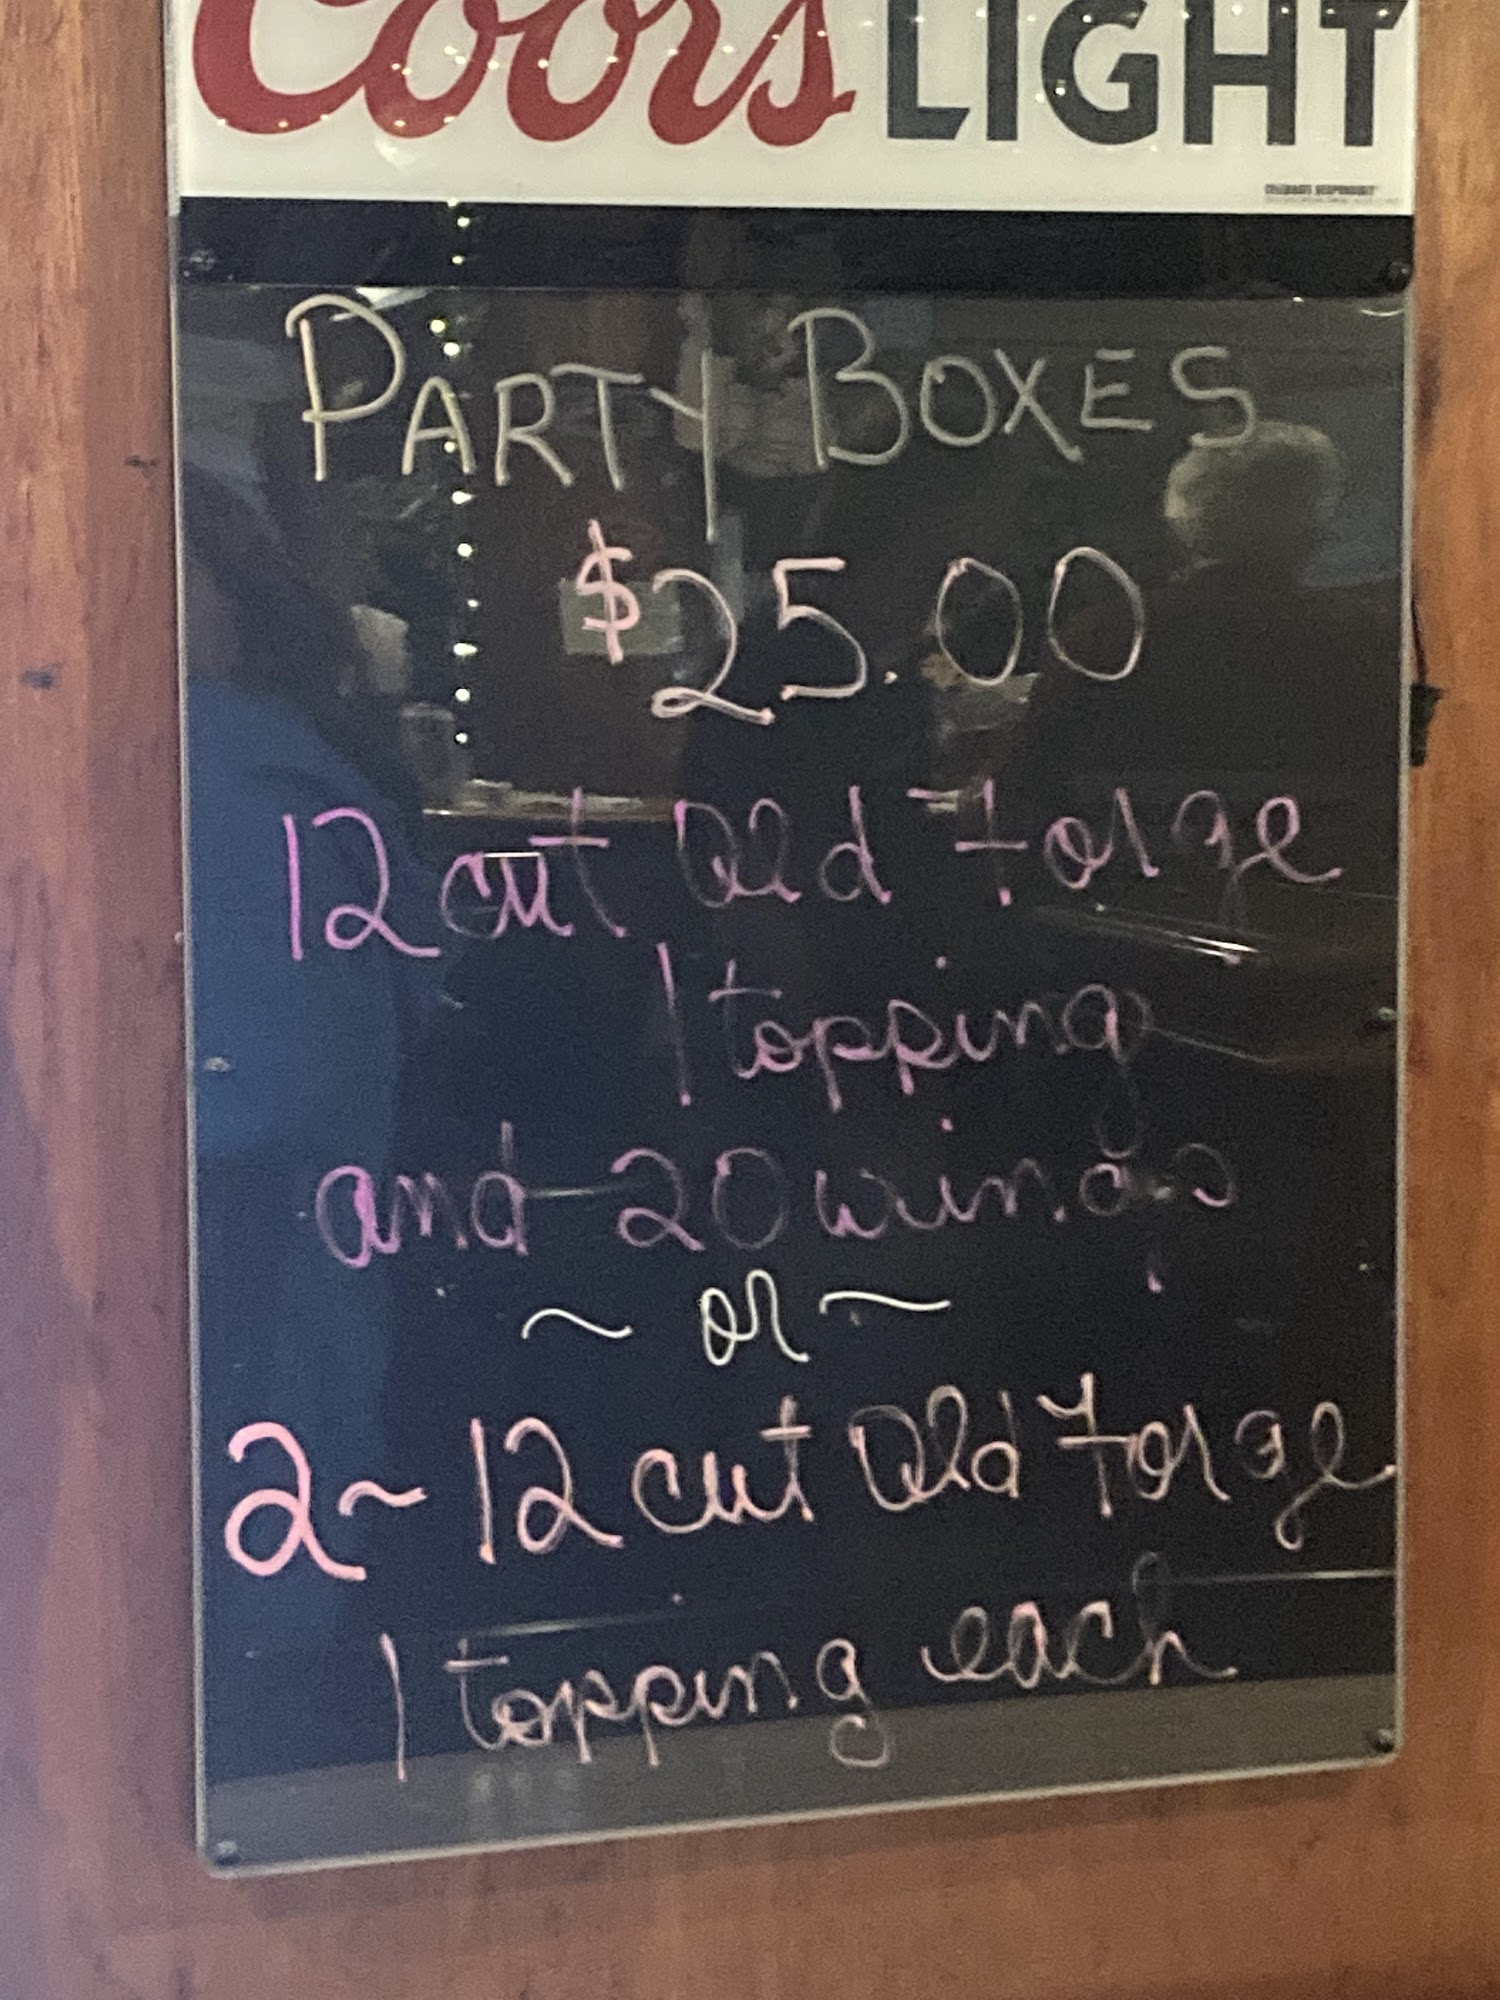 Coors LIGHT
CELEBRATE RESPONSIBLY®
PARTY BOXES
$25.00
12 cut Old Forge
1 topping
and 20 wings
~ or ~
2~ 12 cut Old Forge
1 topping each